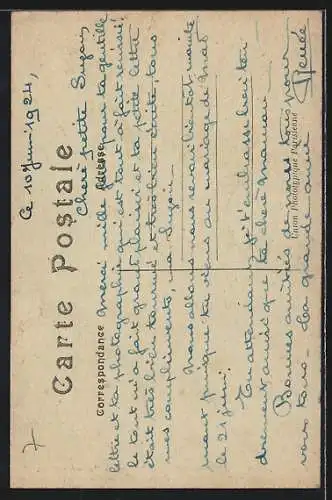 Carte Postale
Correspondance
Adresse
Union Phototypique Parisienne
7
Ce 10 Juin 1924,
Chère petite Suzon,
Merci mille fois pour ta gentille
lettre et ta photographie qui est tout à fait réussie!
le tout m'a fait grand plaisir et ta petite lettre
était très bien tournée et très bien écrite, tous
mes compliments, ma Suzon.
Nous allons nous revoir bientôt mainte
nant puisque tu viens au mariage de
le 21 juin.
En attendant, je t'embrasse bien ten
drement ainsi que ta chère Maman.
Bonnes amitiés de nous tous pour
vous tous. La grande amie
Renée